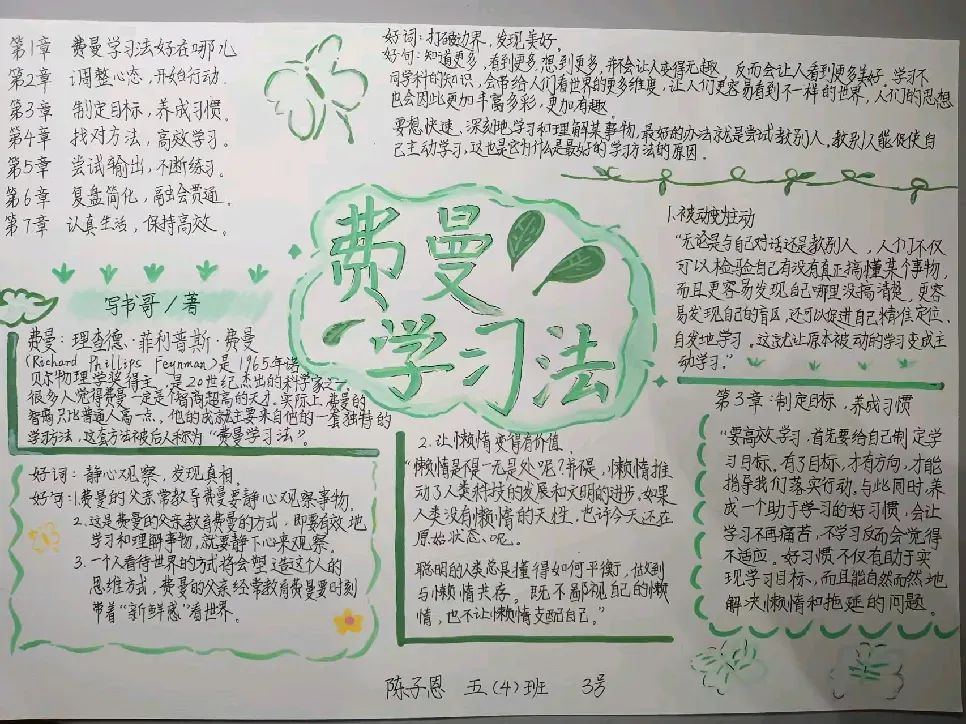 第1章 费曼学习法好在哪儿
第2章 调整心态,开始行动.
第3章 制定目标,养成习惯。
第4章 找对方法,高效学习。
第5章 尝试输出,不断练习。
第6章 复盘简化,融会贯通。
第7章 认真生活,保持高效。
好词:打破边界,发现美好。
好句:知道更多,看到更多,想到更多,并不会让人变得无趣,反而会让人看到更多美好。学习不
同学科的知识,会带给人们看世界的更多维度,让人们更容易看到不一样的世界,人们的思想
也会因此更加丰富多彩,更加有趣.
要想快速、深刻地学习和理解某事物,最好的办法就是尝试教别人。教别人能促使自
己主动学习,这也是它为什么是最好的学习方法的原因.
费曼
学习法
写书哥/著
费曼:理查德·菲利普斯·费曼
(Richard Phillips Feynman)是1965年诺
贝尔物理学奖得主,是20世纪杰出的科学家之一.
很多人觉得费曼一定是个智商超高的天才.实际上,费曼的
智商只比普通人高一点,他的成就主要来自他的一套独特的
学习方法,这套方法被后人称为“费曼学习法”。
好词:静心观察,发现真相.
好句:1.费曼的父亲常教导费曼要静心观察事物.
2.这是费曼的父亲教育费曼的方式,即要有效地
学习和理解事物,就要静下心来观察。
3.一个人看待世界的方式将会塑造这个人的
思维方式,费曼的父亲经常教育费曼要时刻
带着“新鲜感”看世界。
1.被动变为主动
“无论是与自己对话还是教别人,人们不仅
可以检验自己有没有真正搞懂某个事物,
而且更容易发现自己哪里没搞清楚,更容
易发现自己的盲区,还可以促进自己精准定位、
自发地学习。这就让原本被动的学习变成主
动学习。”
2.让懒惰变得有价值.
“懒惰是不是一无是处呢?并不是,懒惰推
动了人类科技的发展和文明的进步.如果
人类没有懒惰的天性,也许今天还在
原始状态呢。
聪明的人类总是懂得如何平衡,做到
与懒惰共存。既不鄙视自己的懒
惰,也不让懒惰支配自己。”
第3章:制定目标,养成习惯
“要高效学习,首先要给自己制定学
习目标。有了目标,才有方向,才能
指导我们落实行动.与此同时,养
成一个助于学习的好习惯,会让
学习不再痛苦,不学习反而会觉得
不适应。好习惯不仅有助于实
现学习目标,而且能自然而然地
解决懒惰和拖延的问题。
陈子恩 五(4)班 3号